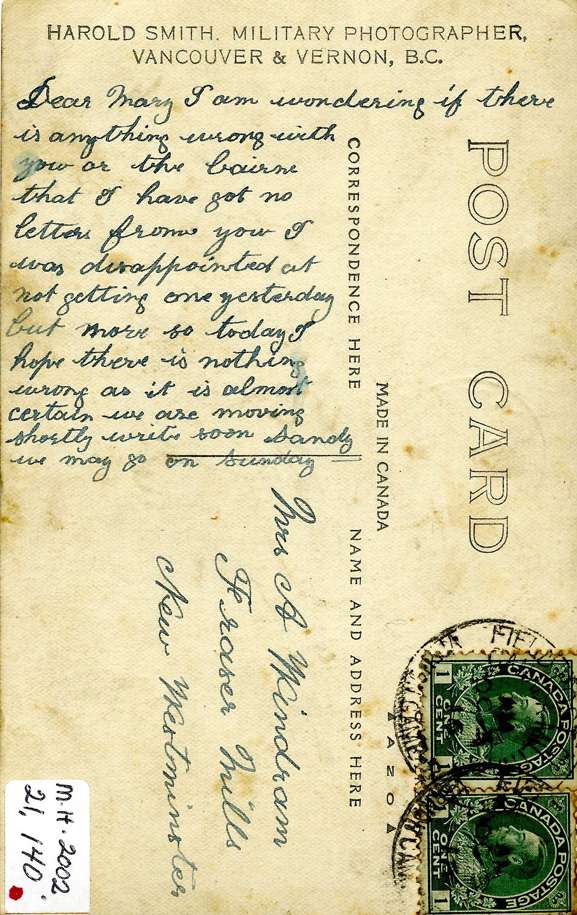 HAROLD SMITH. MILITARY PHOTOGRAPHER,
VANCOUVER & VERNON, B.C.
Dear Mary I am wondering if there
is anything wrong with
you or the bairns
that I have got no
letters frome you I
was disappointed at
not getting one yesterday
but more so today I
hope there is nothing
wrong as it is almost
certain we are moving
shortly write soon Sandy
we may go on Sunday
CORRESPONDENCE HERE
POST CARD
MADE IN CANADA
NAME AND ADDRESS HERE
Mrs A Windram
Fraser Mills
New Westminster
CANADA POSTAGE
1 ONE CENT 1
CANADA POSTAGE
1 ONE CENT 1
M.H. 2002.
21, 140